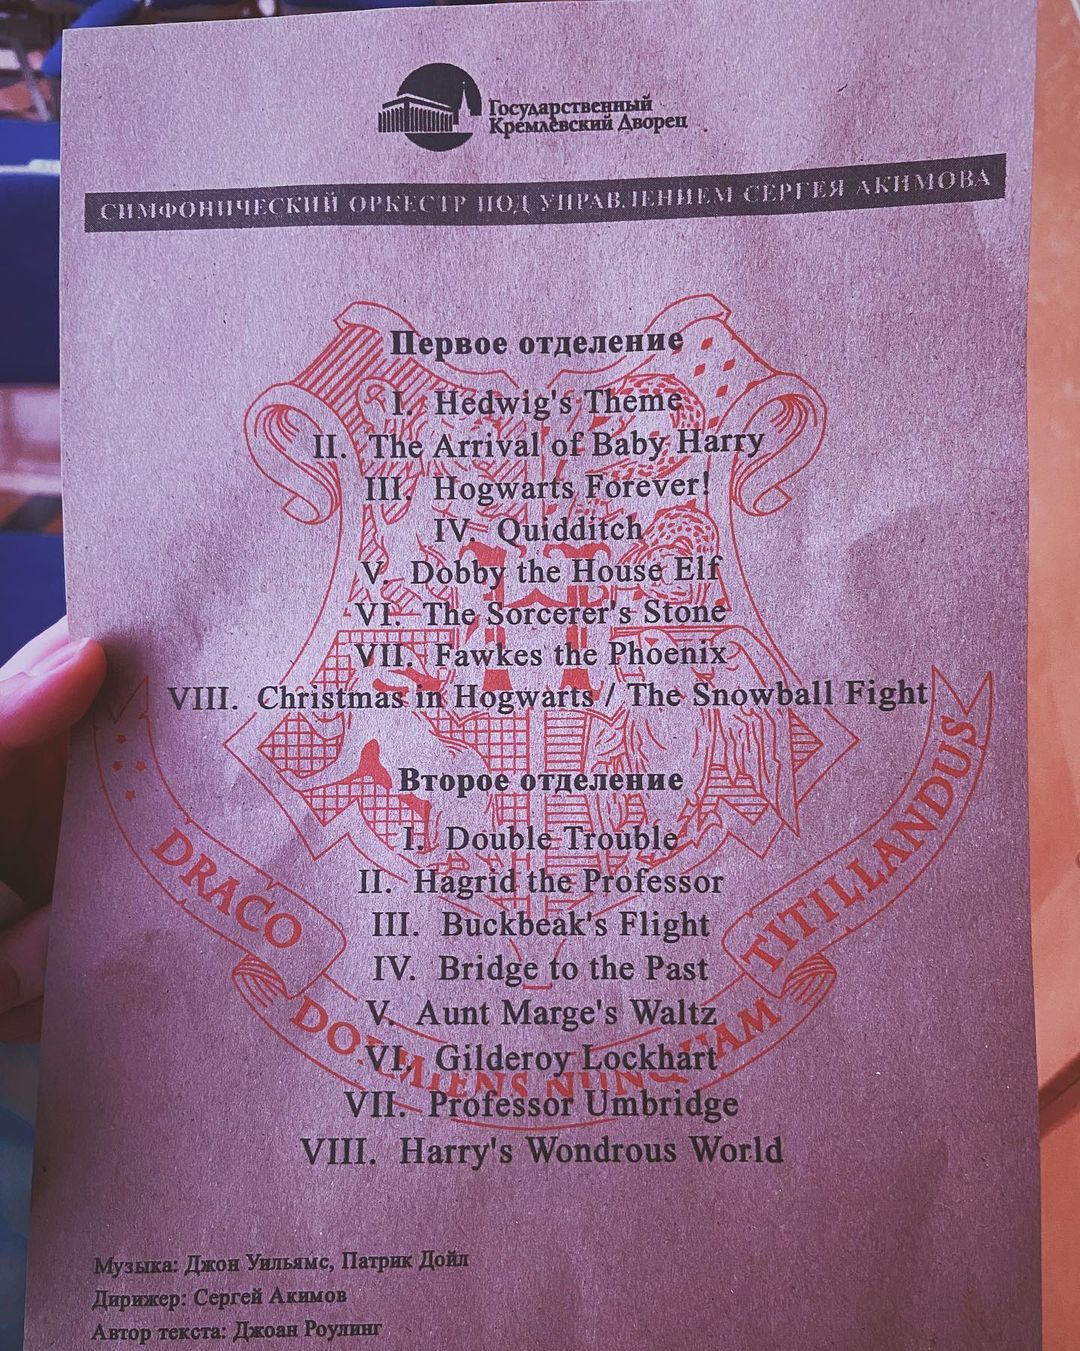 Государственный
Кремлёвский Дворец
СИМФОНИЧЕСКИЙ ОРКЕСТР ПОД УПРАВЛЕНИЕМ СЕРГЕЯ АКИМОВА
Первое отделение
I. Hedwig's Theme
II. The Arrival of Baby Harry
III. Hogwarts Forever!
IV. Quidditch
V. Dobby the House Elf
VI. The Sorcerer's Stone
VII. Fawkes the Phoenix
VIII. Christmas in Hogwarts / The Snowball Fight
Второе отделение
I. Double Trouble
II. Hagrid the Professor
III. Buckbeak's Flight
IV. Bridge to the Past
V. Aunt Marge's Waltz
VI. Gilderoy Lockhart
VII. Professor Umbridge
VIII. Harry's Wondrous World
DRACO DORMIENS NUNQUAM TITILLANDUS
Музыка: Джон Уильямс, Патрик Дойл
Дирижер: Сергей Акимов
Автор текста: Джоан Роулинг